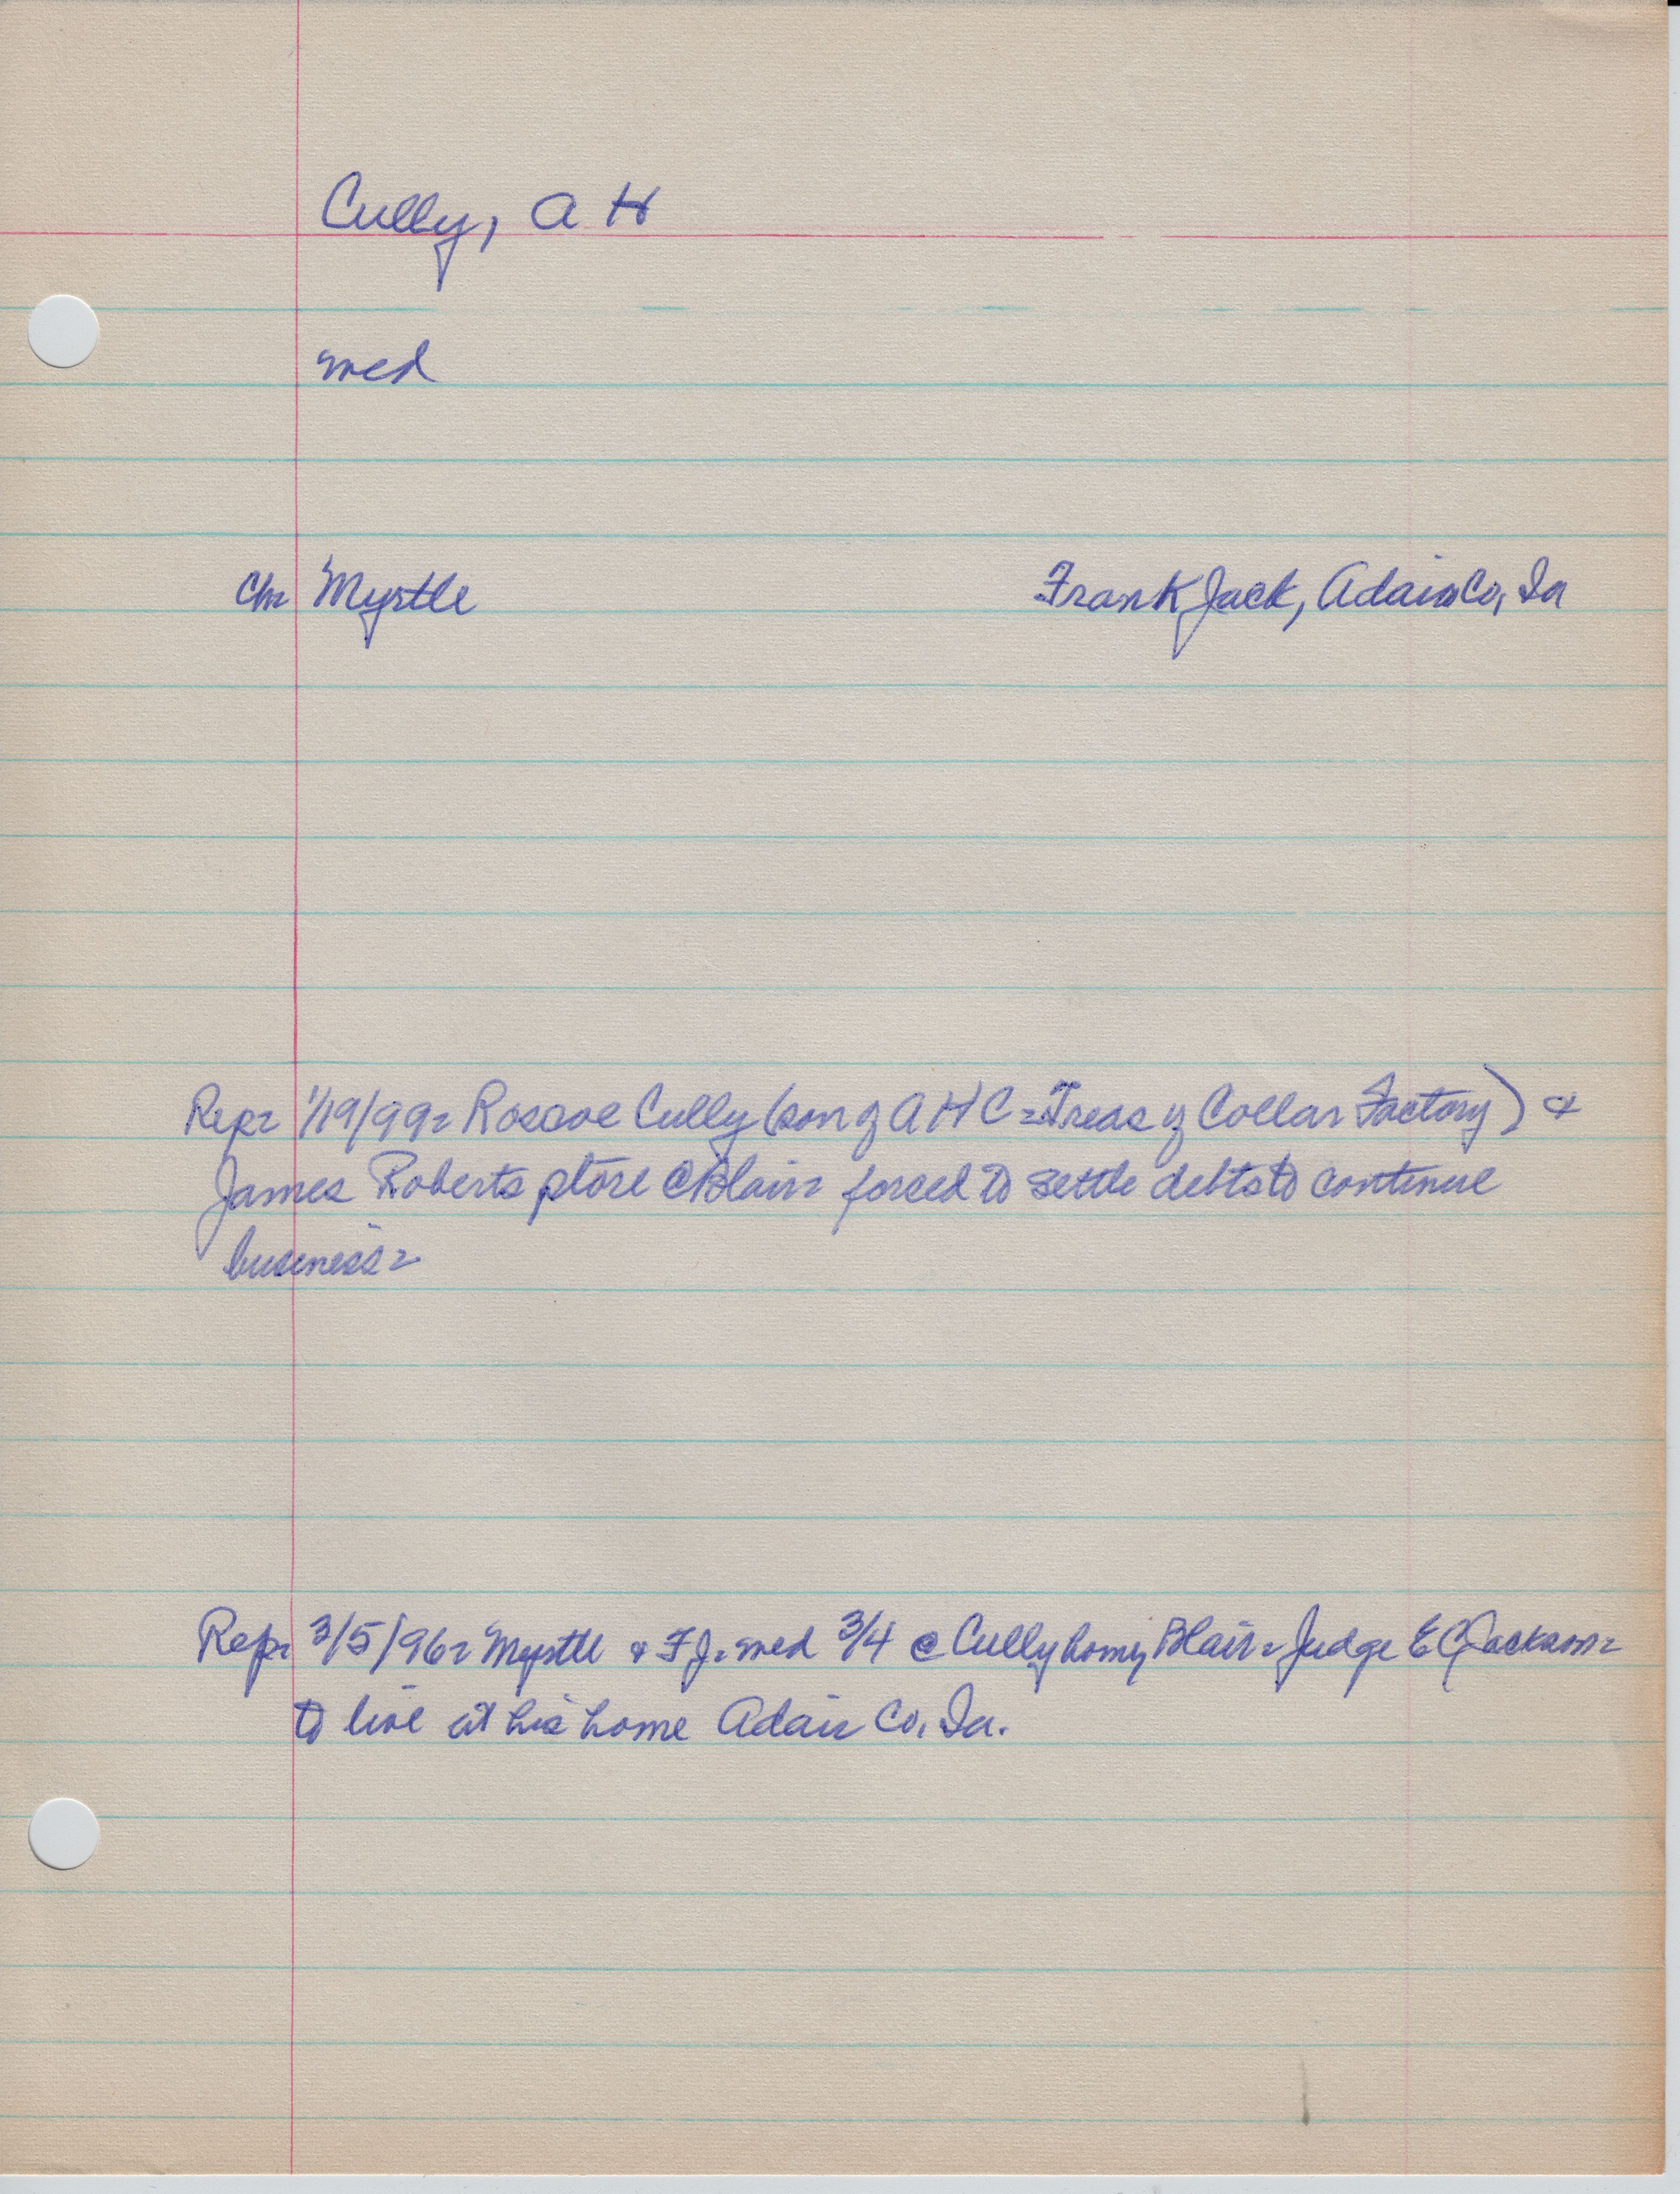 Cully, A H
med
Chn Myrtle Frank Jack, Adair Co, Ia
Rep- 1/19/99- Roscoe Cully (son of A H C - Treas of Collar Factory) &
James Roberts store @ Blair- forced to settle debts to continue
business-
Rep- 3/5/96- Myrtle & F J- med 3/4 @ Cully home, Blair- Judge E C Jackson-
to live at his home Adair Co, Ia.